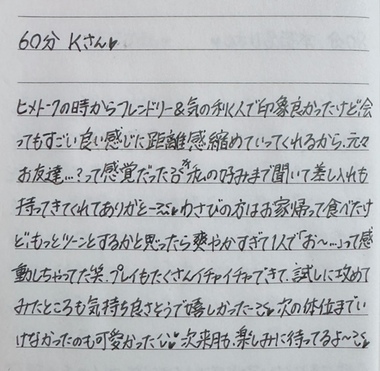 60分 Kさん♥
ヒメトークの時からフレンドリー&気の利く人で印象良かったけど会
ってもすごい良い感じに距離感縮めていってくれるから、元々
お友達…?って感覚だった 私の好みまで聞いて差し入れも
持ってきてくれてありがと〜 ♥わさびの方はお家帰って食べたけ
ど、もっとツーンとするかと思ったら爽やかすぎて1人で「お〜…」って感
動しちゃってた笑、プレイもたくさんイチャイチャできて、試しに攻めて
みたところも気持ち良さそうで嬉しかったー 次の体位までい
けなかったのも可愛かった♥ 次来月も、楽しみに待ってるよ〜